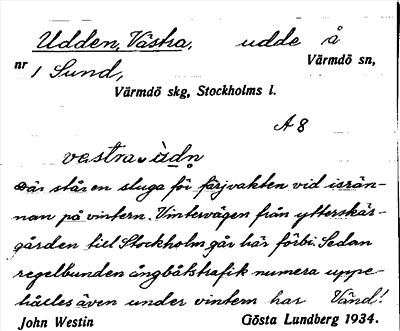 Udden, Västra, udde å
nr 1 Sund, Värmdö sn,
Värmdö skg, Stockholms l.
A 8
västra ùdn
Där står en stuga för färjvakten vid isrän-
nan på vintern. Vintervägen från ytterskär-
gården till Stockholm går här förbi. Sedan
regelbunden ångbåtstrafik numera uppe-
hålles även under vintern har Vänd!
John Westin Gösta Lundberg 1934.